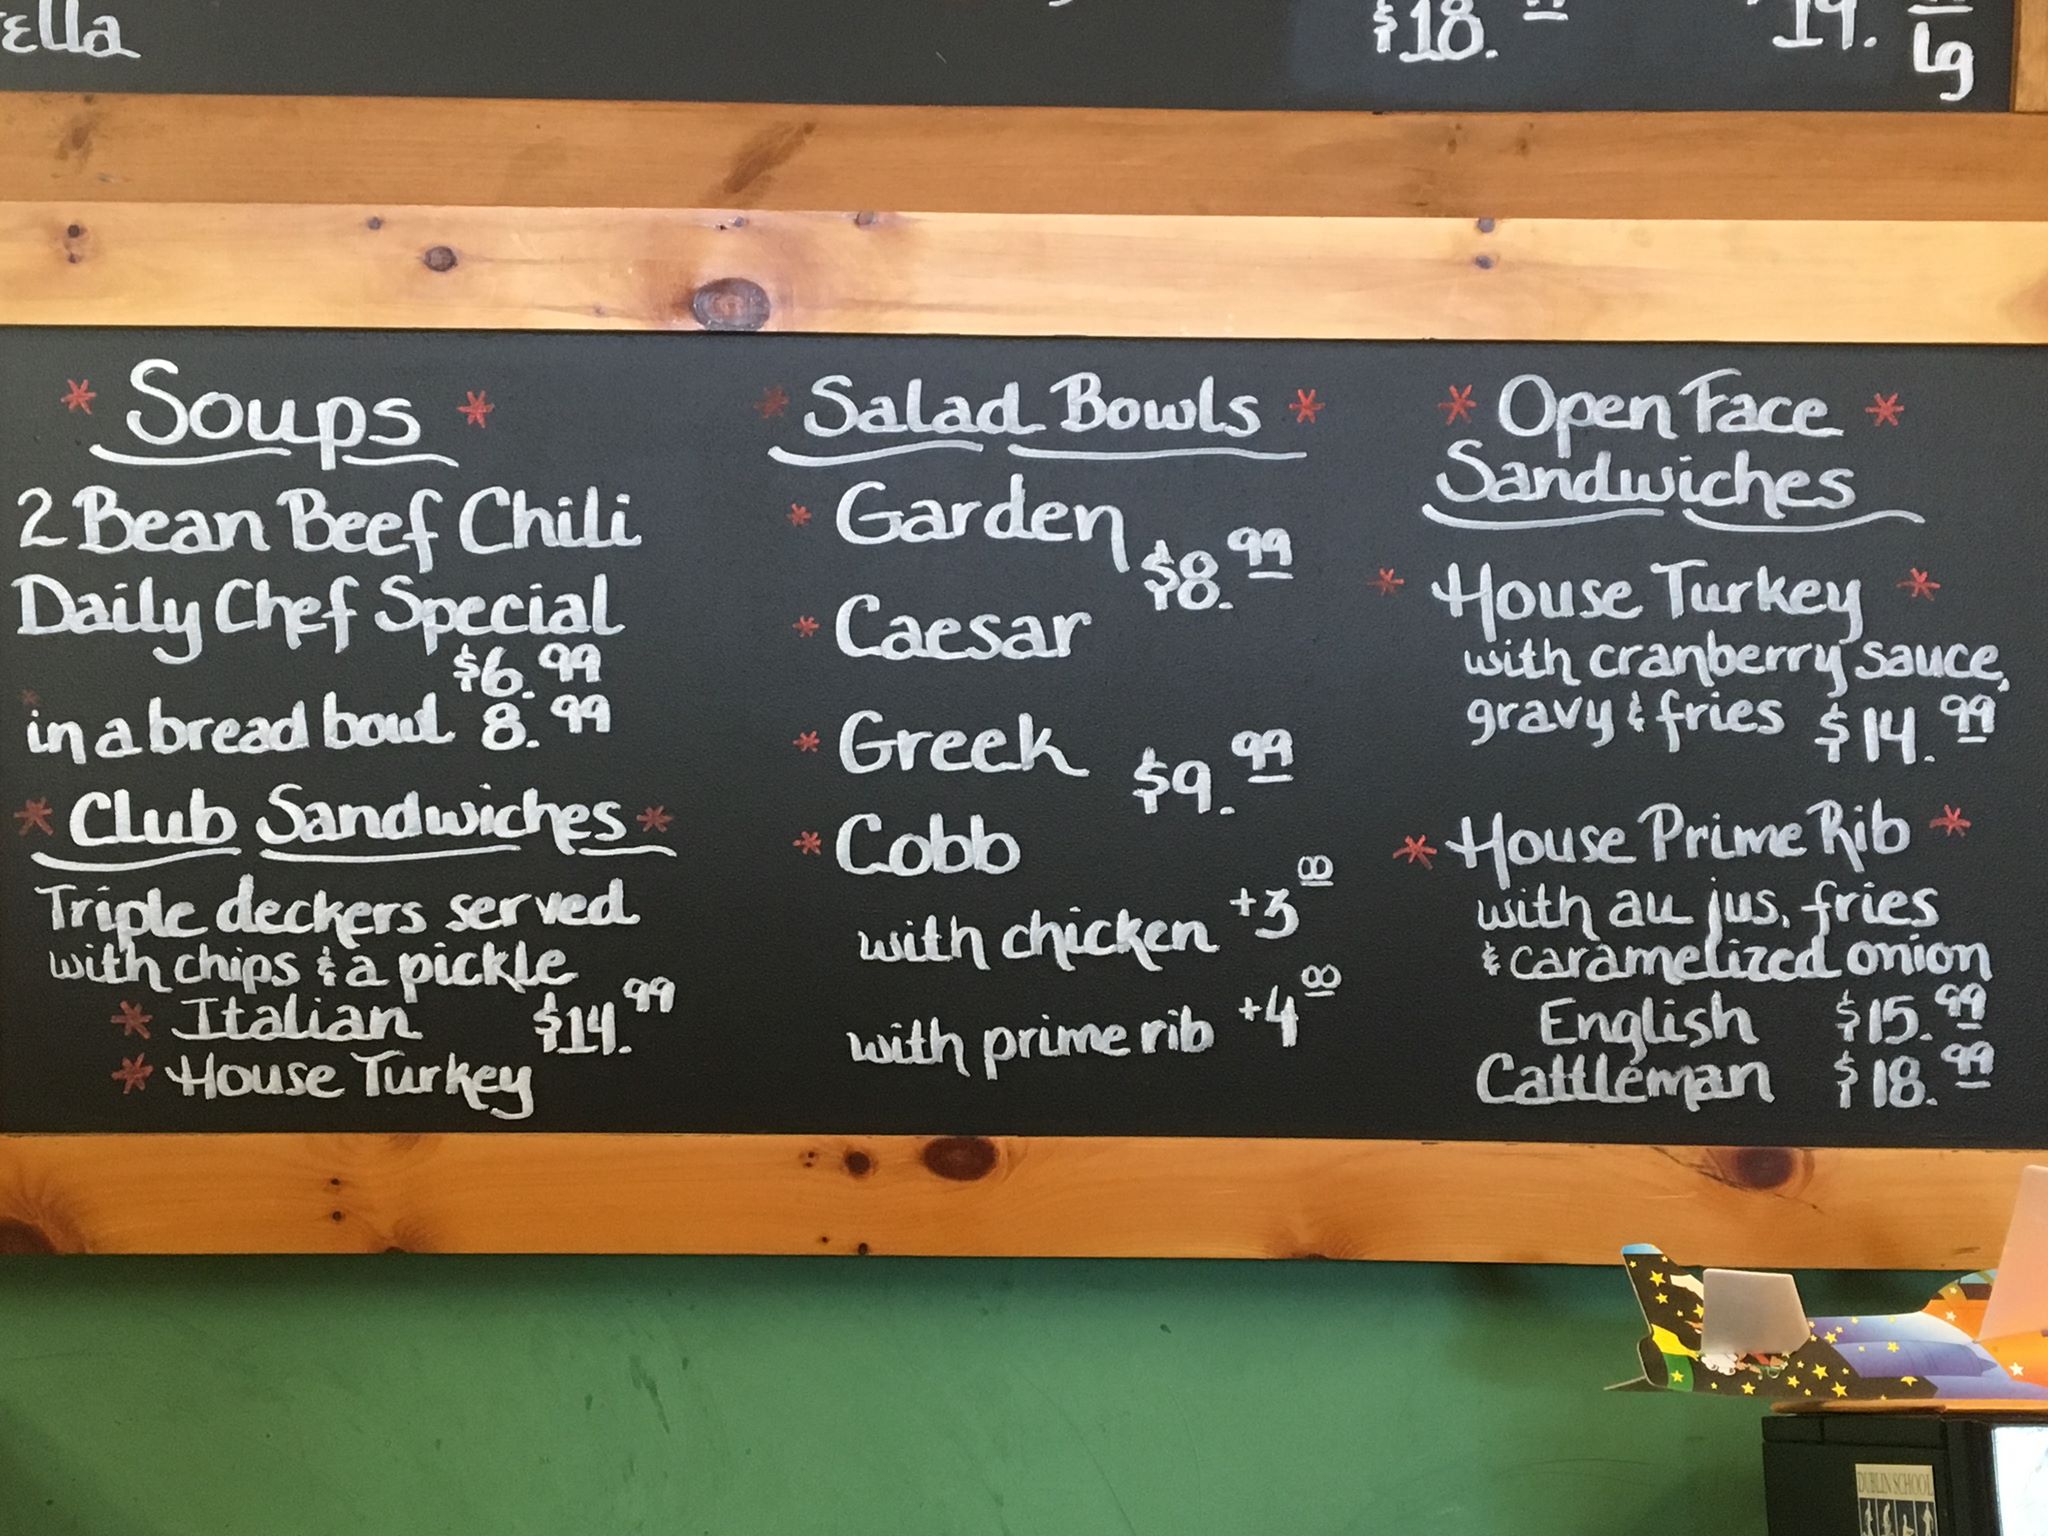 ella
$18.
19.
Lg
* Soups *
2 Bean Beef Chili
Daily Chef Special
$6.99
* in a bread bowl 8.99
* Club Sandwiches *
Triple deckers served
with chips & a pickle
* Italian $14.99
* House Turkey
* Salad Bowls *
* Garden
$8.99
* Caesar
* Greek
$9.99
* Cobb
with chicken +3.00
with prime rib +4.00
* Open Face *
Sandwiches
* House Turkey *
with cranberry sauce,
gravy & fries $14.99
* House Prime Rib *
with au jus, fries
& caramelized onion
English $15.99
Cattleman $18.99
DUBLIN SCHOOL